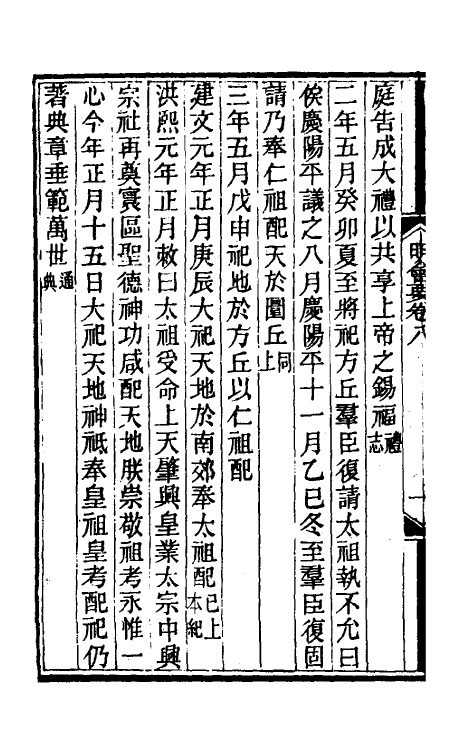 庭告成大禮以共享上帝之錫福禮志
二年五月癸卯夏至將祀方丘羣臣復請太祖執不允曰
俟慶陽平議之八月慶陽平十一月乙巳冬至羣臣復固
請乃奉仁祖配天於圜丘同上
三年五月戊申祀地於方丘以仁祖配
建文元年正月庚辰大祀天地於南郊奉太祖配已上本紀
洪熙元年正月敕曰太祖受命上天肇興皇業太宗中興
宗社再奠寰區聖德神功咸配天地朕崇敬祖考永惟一
心今年正月十五日大祀天地神祇奉皇祖皇考配祀仍
著典章垂範萬世通典
明會要卷八